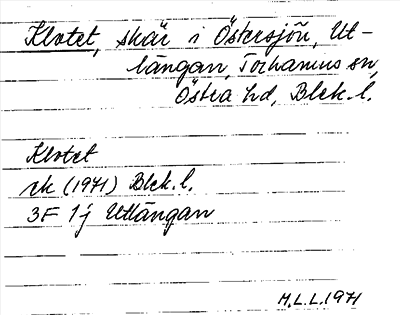 Klotet, skär i Östersjön, Ut-
längan, Torhamns sn,
Östra hd, Blek. l.
Klotet
rk (1971) Blek. l.
3F 1j Utlängan
M.L.L. 1971